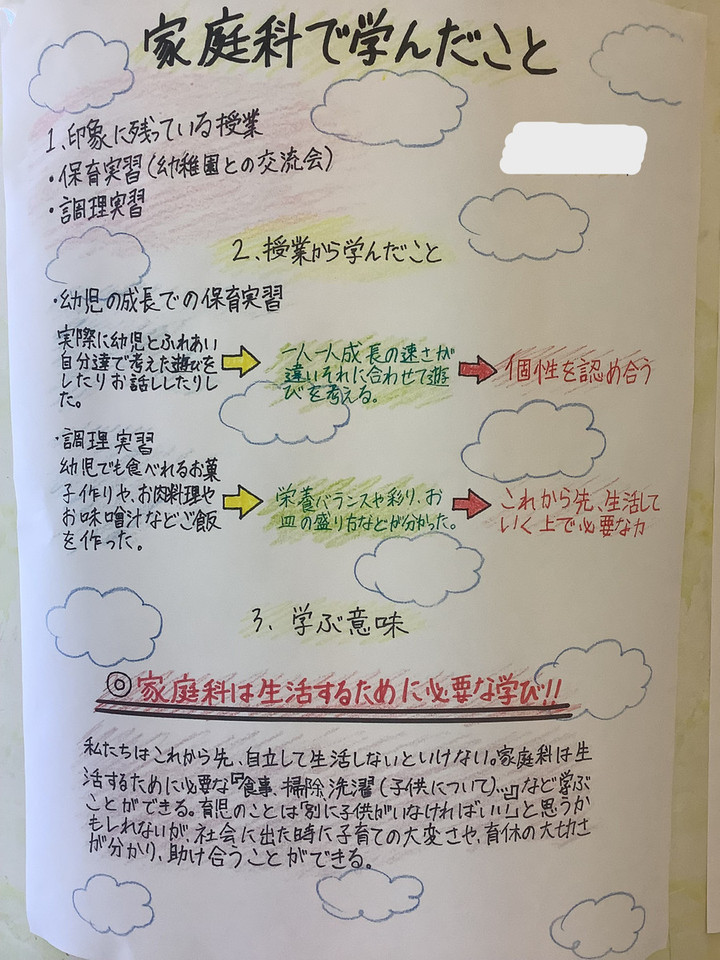 家庭科で学んだこと
1、印象に残っている授業
・保育実習(幼稚園との交流会)
・調理実習
2、授業から学んだこと
・幼児の成長での保育実習
実際に幼児とふれあい
自分達で考えた遊びを
したりお話ししたりし
た。
一人一人成長の速さが
違いそれに合わせて遊
びを考える。
個性を認め合う
・調理実習
幼児でも食べれるお菓
子作りや、お肉料理や
お味噌汁などご飯
を作った。
栄養バランスや彩り、お
皿の盛り方などが分かった。
これから先、生活して
いく上で必要な力
3、学ぶ意味
◎家庭科は生活するために必要な学び!!
私たちはこれから先、自立して生活しないといけない。家庭科は生
活するために必要な『食事、掃除、洗濯(子供について)…』など学ぶ
ことができる。育児のことは「別に子供がいなければいい」と思うか
もしれないが、社会に出た時に子育ての大変さや、育休の大切さ
が分かり、助け合うことができる。